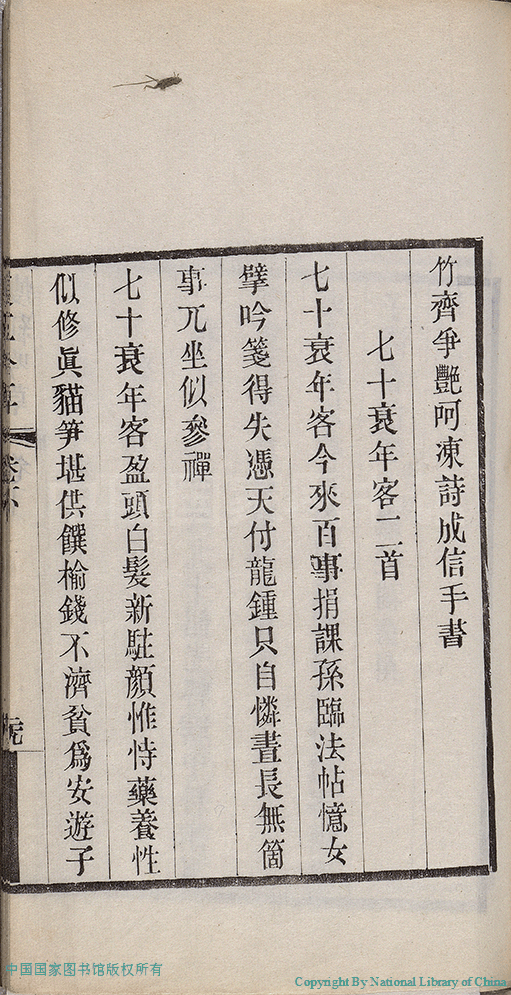 竹齊爭艷呵凍詩成信手書
七十衰年客二首
七十衰年客今來百事捐課孫臨法帖憶女
擘吟箋得失憑天付龍鍾只自憐晝長無箇
事兀坐似參禪
七十衰年客盈頭白髮新駐顏惟恃藥養性
似修眞貓笋堪供饌榆錢不濟貧爲安遊子
卷下
中国国家图书馆版权所有
Copyright By National Library of China